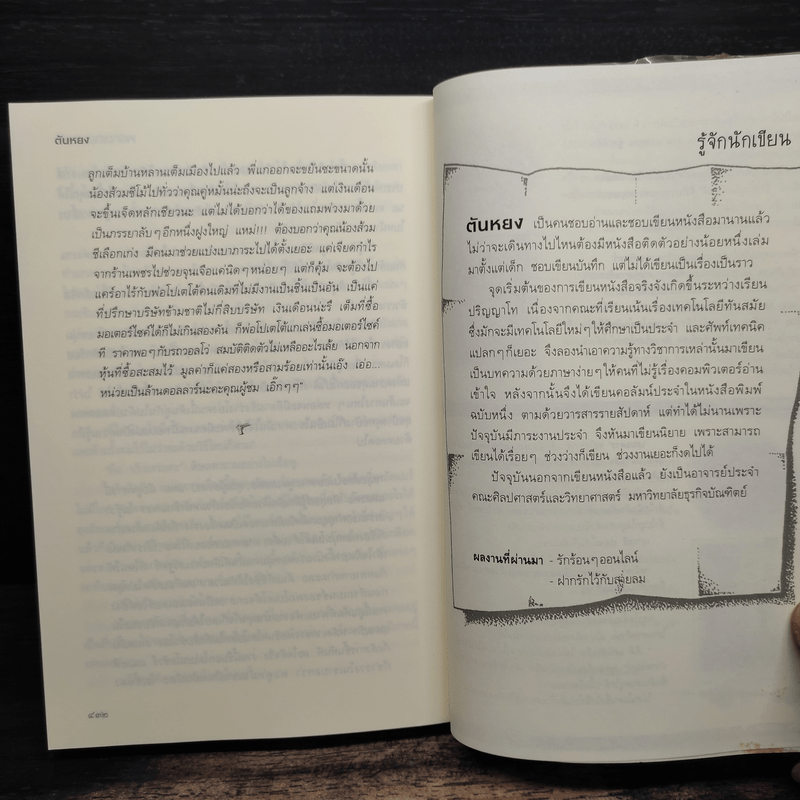 ตันหยง
ลูกเต็มบ้านหลานเต็มเมืองไปแล้ว พี่แกออกจะขยันซะขนาดนั้น
น้องส้วมซีโม้ไปทั่วว่าคุณคู่หมั้นน่ะถึงจะเป็นลูกจ้าง แต่เงินเดือน
จะขึ้นเจ็ดหลักเชียวนะ แต่ไม่ได้บอกว่าได้ของแถมพ่วงมาด้วย
เป็นภรรยาลับๆอีกหนึ่งฝูงใหญ่ แหม!!! ต้องบอกว่าคุณน้องส้วม
ซีเลือกเก่ง มีคนมาช่วยแบ่งเบาภาระไปได้ตั้งเยอะ แค่เจียดกำไร
จากร้านเพชรไปช่วยจุนเจือแค่นิดๆหน่อยๆ แต่ก็คุ้ม จะต้องไป
แคร์อาไร้กับพ่อโปเตโต้คนเดิมที่ไม่มีงานเป็นชิ้นเป็นอัน เป็นแค่
ที่ปรึกษาบริษัทข้ามชาติไม่กี่สิบบริษัท เงินเดือนน่ะรึ เต็มที่ซื้อ
มอเตอร์ไซค์ได้ก็ไม่เกินสองคัน ก็พ่อโปเตโต้แกเล่นซื้อมอเตอร์ไซค์
ที ราคาพอๆกับรถวอลโว่ สมบัติติดตัวไม่เหลืออะไรเล้ย นอกจาก
หุ้นที่ซื้อสะสมไว้ มูลค่าก็แค่สองหรือสามร้อยเท่านั้นเอ๊ง เอ่อ...
หน่วยเป็นล้านดอลลาร์นะคะคุณผู้ชม เอิ๊กๆๆ"
๔๓๒
รู้จักนักเขียน
ตันหยง เป็นคนชอบอ่านและชอบเขียนหนังสือมานานแล้ว
ไม่ว่าจะเดินทางไปไหนต้องมีหนังสือติดตัวอย่างน้อยหนึ่งเล่ม
มาตั้งแต่เด็ก ชอบเขียนบันทึก แต่ไม่ได้เขียนเป็นเรื่องเป็นราว
จุดเริ่มต้นของการเขียนหนังสือจริงจังเกิดขึ้นระหว่างเรียน
ปริญญาโท เนื่องจากคณะที่เรียนเน้นเรื่องเทคโนโลยีทันสมัย
ซึ่งมักจะมีเทคโนโลยีใหม่ๆให้ศึกษาเป็นประจำ และศัพท์เทคนิค
แปลกๆก็เยอะ จึงลองนำเอาความรู้ทางวิชาการเหล่านั้นมาเขียน
เป็นบทความด้วยภาษาง่ายๆให้คนที่ไม่รู้เรื่องคอมพิวเตอร์อ่าน
เข้าใจ หลังจากนั้นจึงได้เขียนคอลัมน์ประจำในหนังสือพิมพ์
ฉบับหนึ่ง ตามด้วยวารสารรายสัปดาห์ แต่ทำได้ไม่นานเพราะ
ปัจจุบันมีภาระงานประจำ จึงหันมาเขียนนิยาย เพราะสามารถ
เขียนได้เรื่อยๆ ช่วงว่างก็เขียน ช่วงงานเยอะก็งดไปได้
ปัจจุบันนอกจากเขียนหนังสือแล้ว ยังเป็นอาจารย์ประจำ
คณะศิลปศาสตร์และวิทยาศาสตร์ มหาวิทยาลัยธุรกิจบัณฑิตย์
ผลงานที่ผ่านมา - รักร้อนๆออนไลน์
- ฝากรักไว้กับสายลม